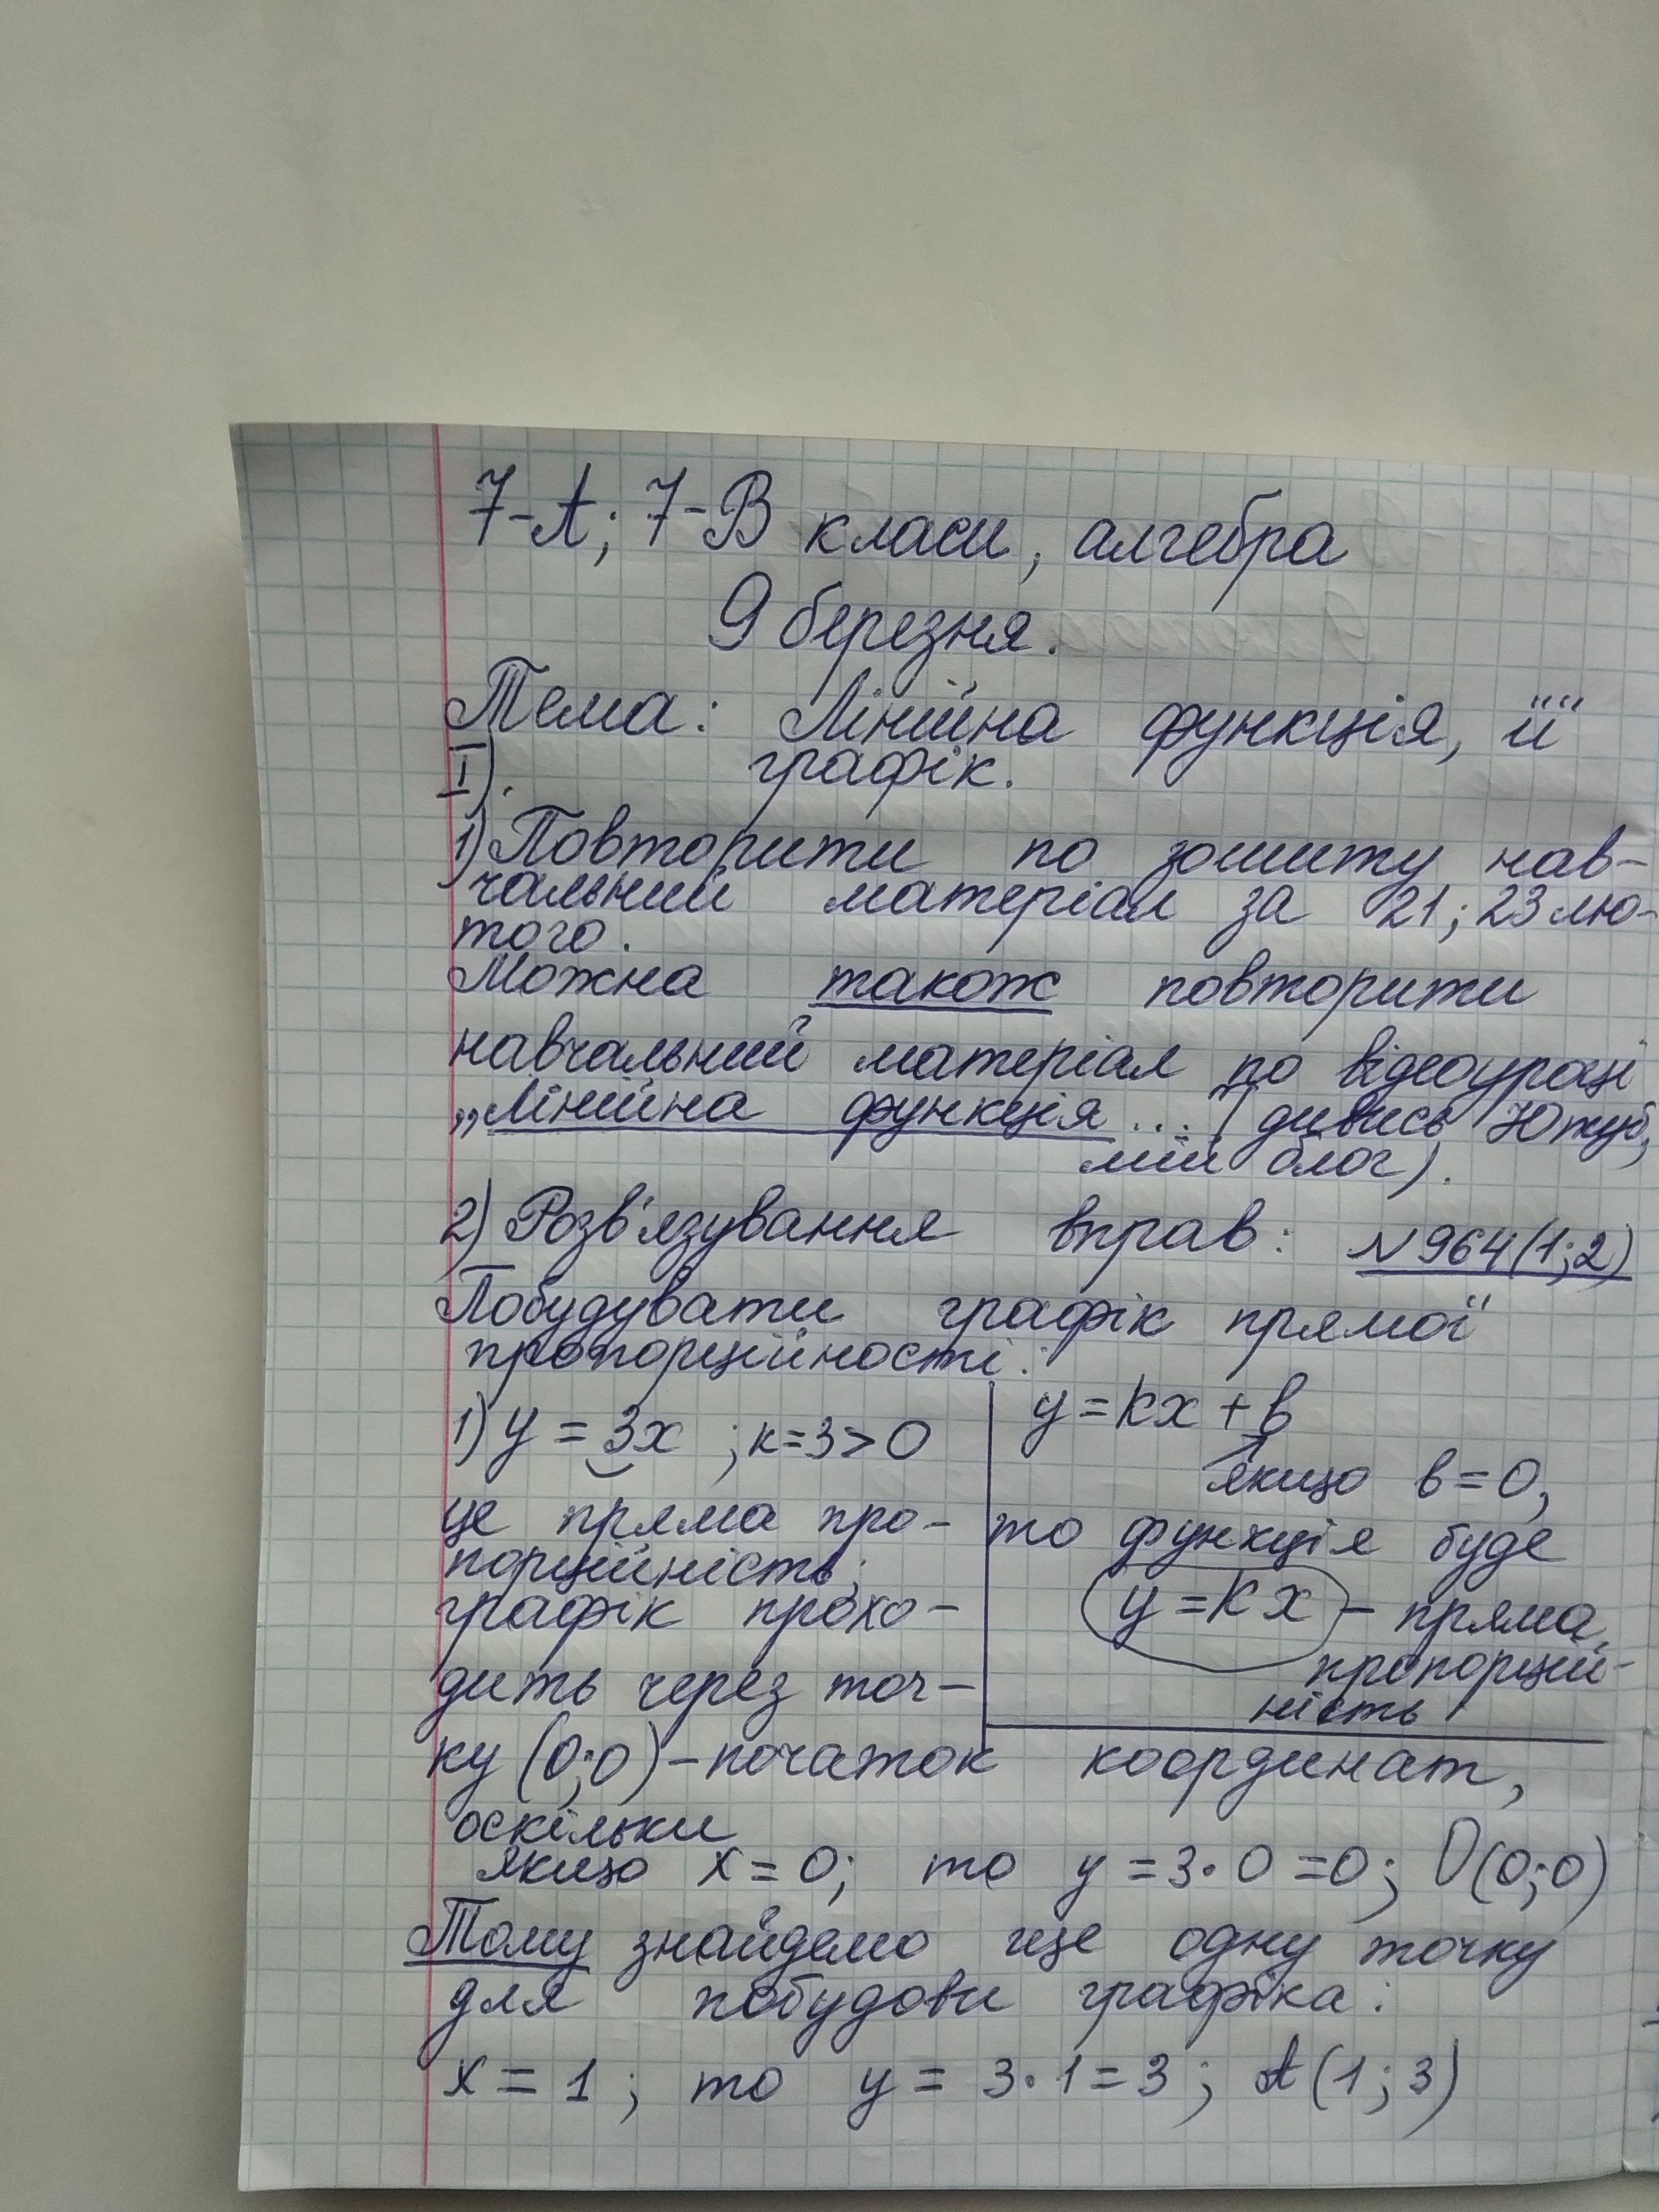 7-А; 7-В класи, алгебра
9 березня.
Тема: Лінійна функція, її
I). графік.
1) Повторити по зошиту нав-
чальний матеріал за 21; 23 лю-
того.
Можна також повторити
навчальний матеріал по відеоуроці
„Лінійна функція ... (дивись Ютуб,
мій блог).
2) Розв'язування вправ: №964(1;2)
Побудувати графік прямої
пропорційності:
1) y = 3x ; к=3>0
це пряма про-
порційність;
графік прохо-
дить через точ-
y = кx + в
якщо в=0,
то функція буде
y = кx – пряма
пропорцій-
ність
ку (0;0) – початок координат,
оскільки
якщо x = 0; то y = 3·0 = 0; O(0;0)
Тому знайдемо ще одну точку
для побудови графіка:
x = 1 ; то y = 3·1 = 3 ; A(1;3)